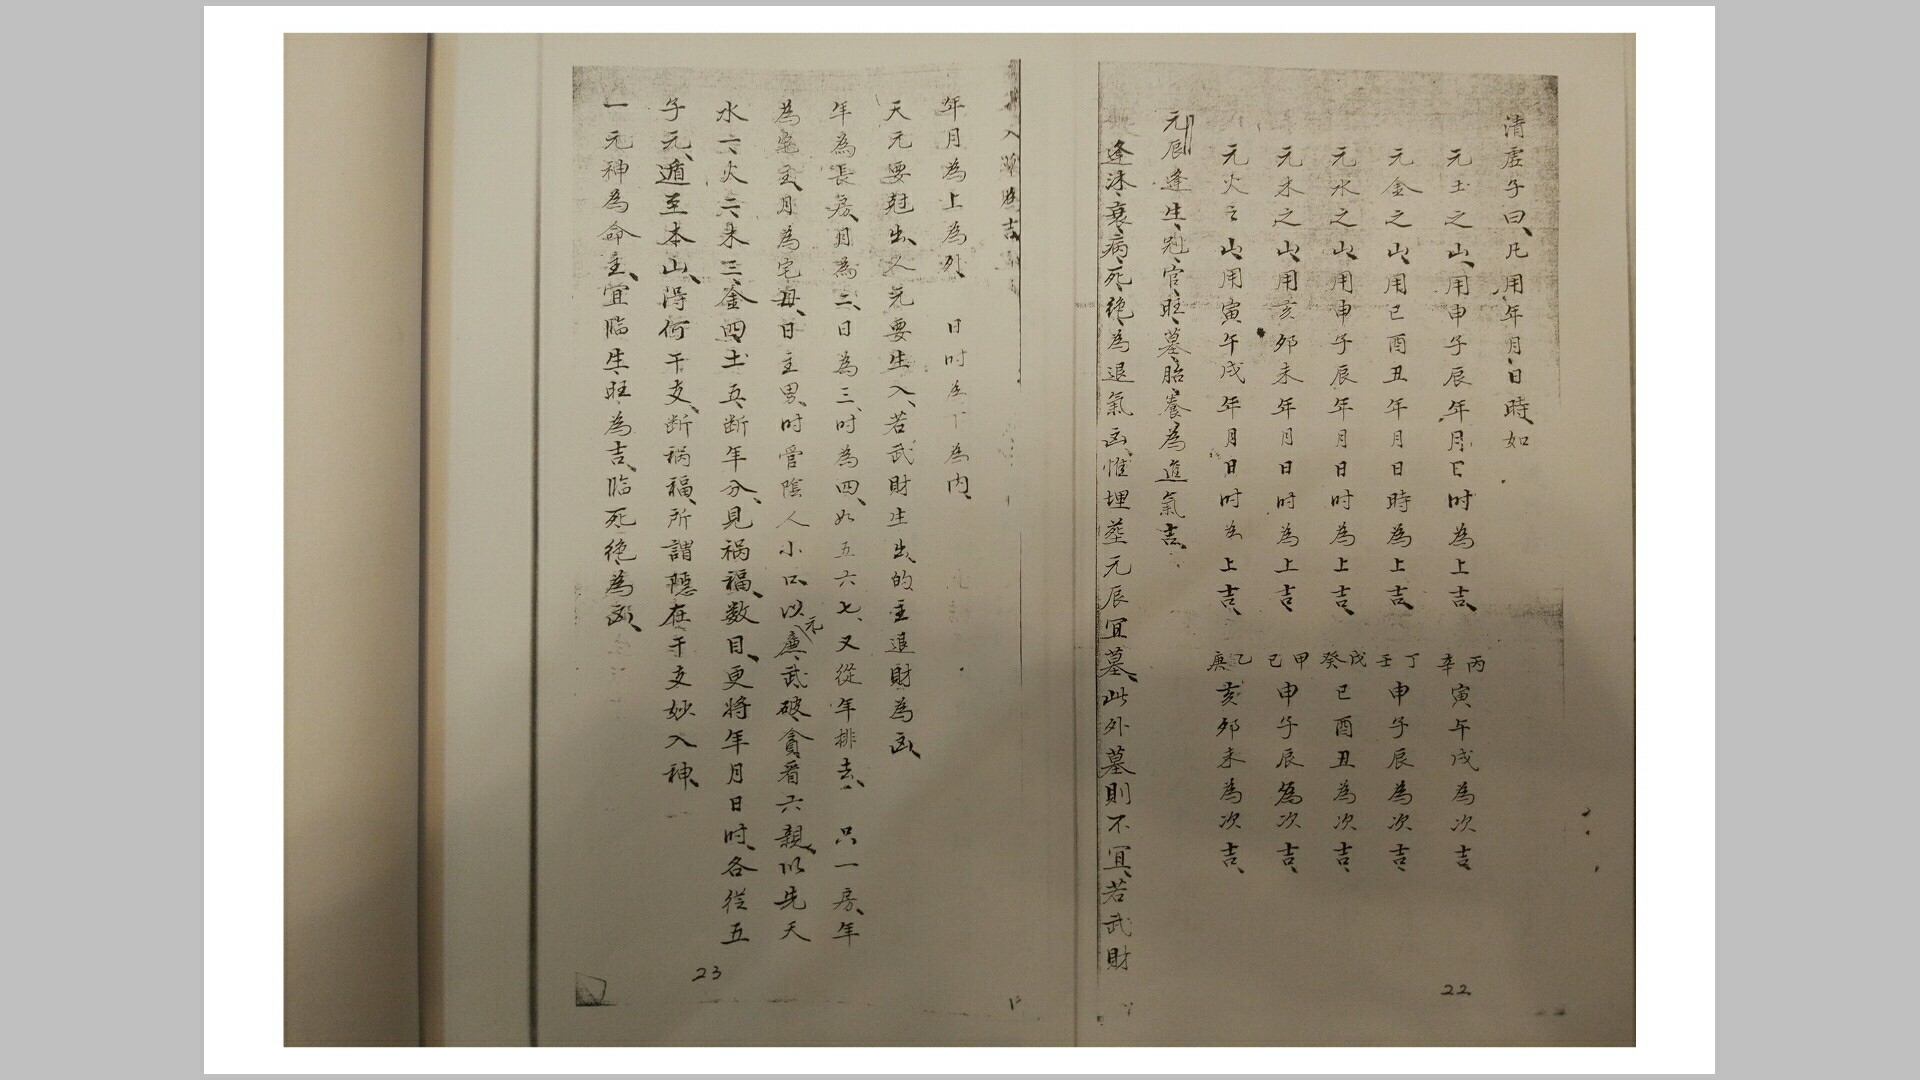 清虚子曰、凡用年月、日時如
元土之山、用申子辰年月日时為上吉、
丙辛寅午戌為次吉、
元金之山、用巳酉丑年月日時為上吉、
丁壬申子辰為次吉、
元水之山、用申子辰年月日时為上吉、
戊癸巳酉丑為次吉、
元木之山、用亥卯未年月日时為上吉、
甲己申子辰為次吉、
元火之山、用寅午戌年月日时為上吉、
乙庚亥卯未為次吉、
元辰逢生、冠、官、旺、墓、胎、養為進氣吉、
逢沐、衰、病、死、絶、為退氣凶、惟埋塟元辰冝墓、此外墓則不冝、若武財
22
入 吉
年月為上為外、日时為下為内、
天元要尅出、人元要生入、若武財生出、的主退財為凶、
年為長房、月為二、日為三、时為四、如五六七、又從年排去、只一房、年
為 主、月為宅母、日主男、时管陰人小口、以廉元武破貪看六親、以先天
水一、火二、木三、金四、土五、断年分、見祸福、数目、更将年月日时、各從五
子元遁至本山、得何干支、断祸福、所謂隱在干支妙入神、
一元神為命主、宜臨生旺為吉、臨死絶為凶、
23